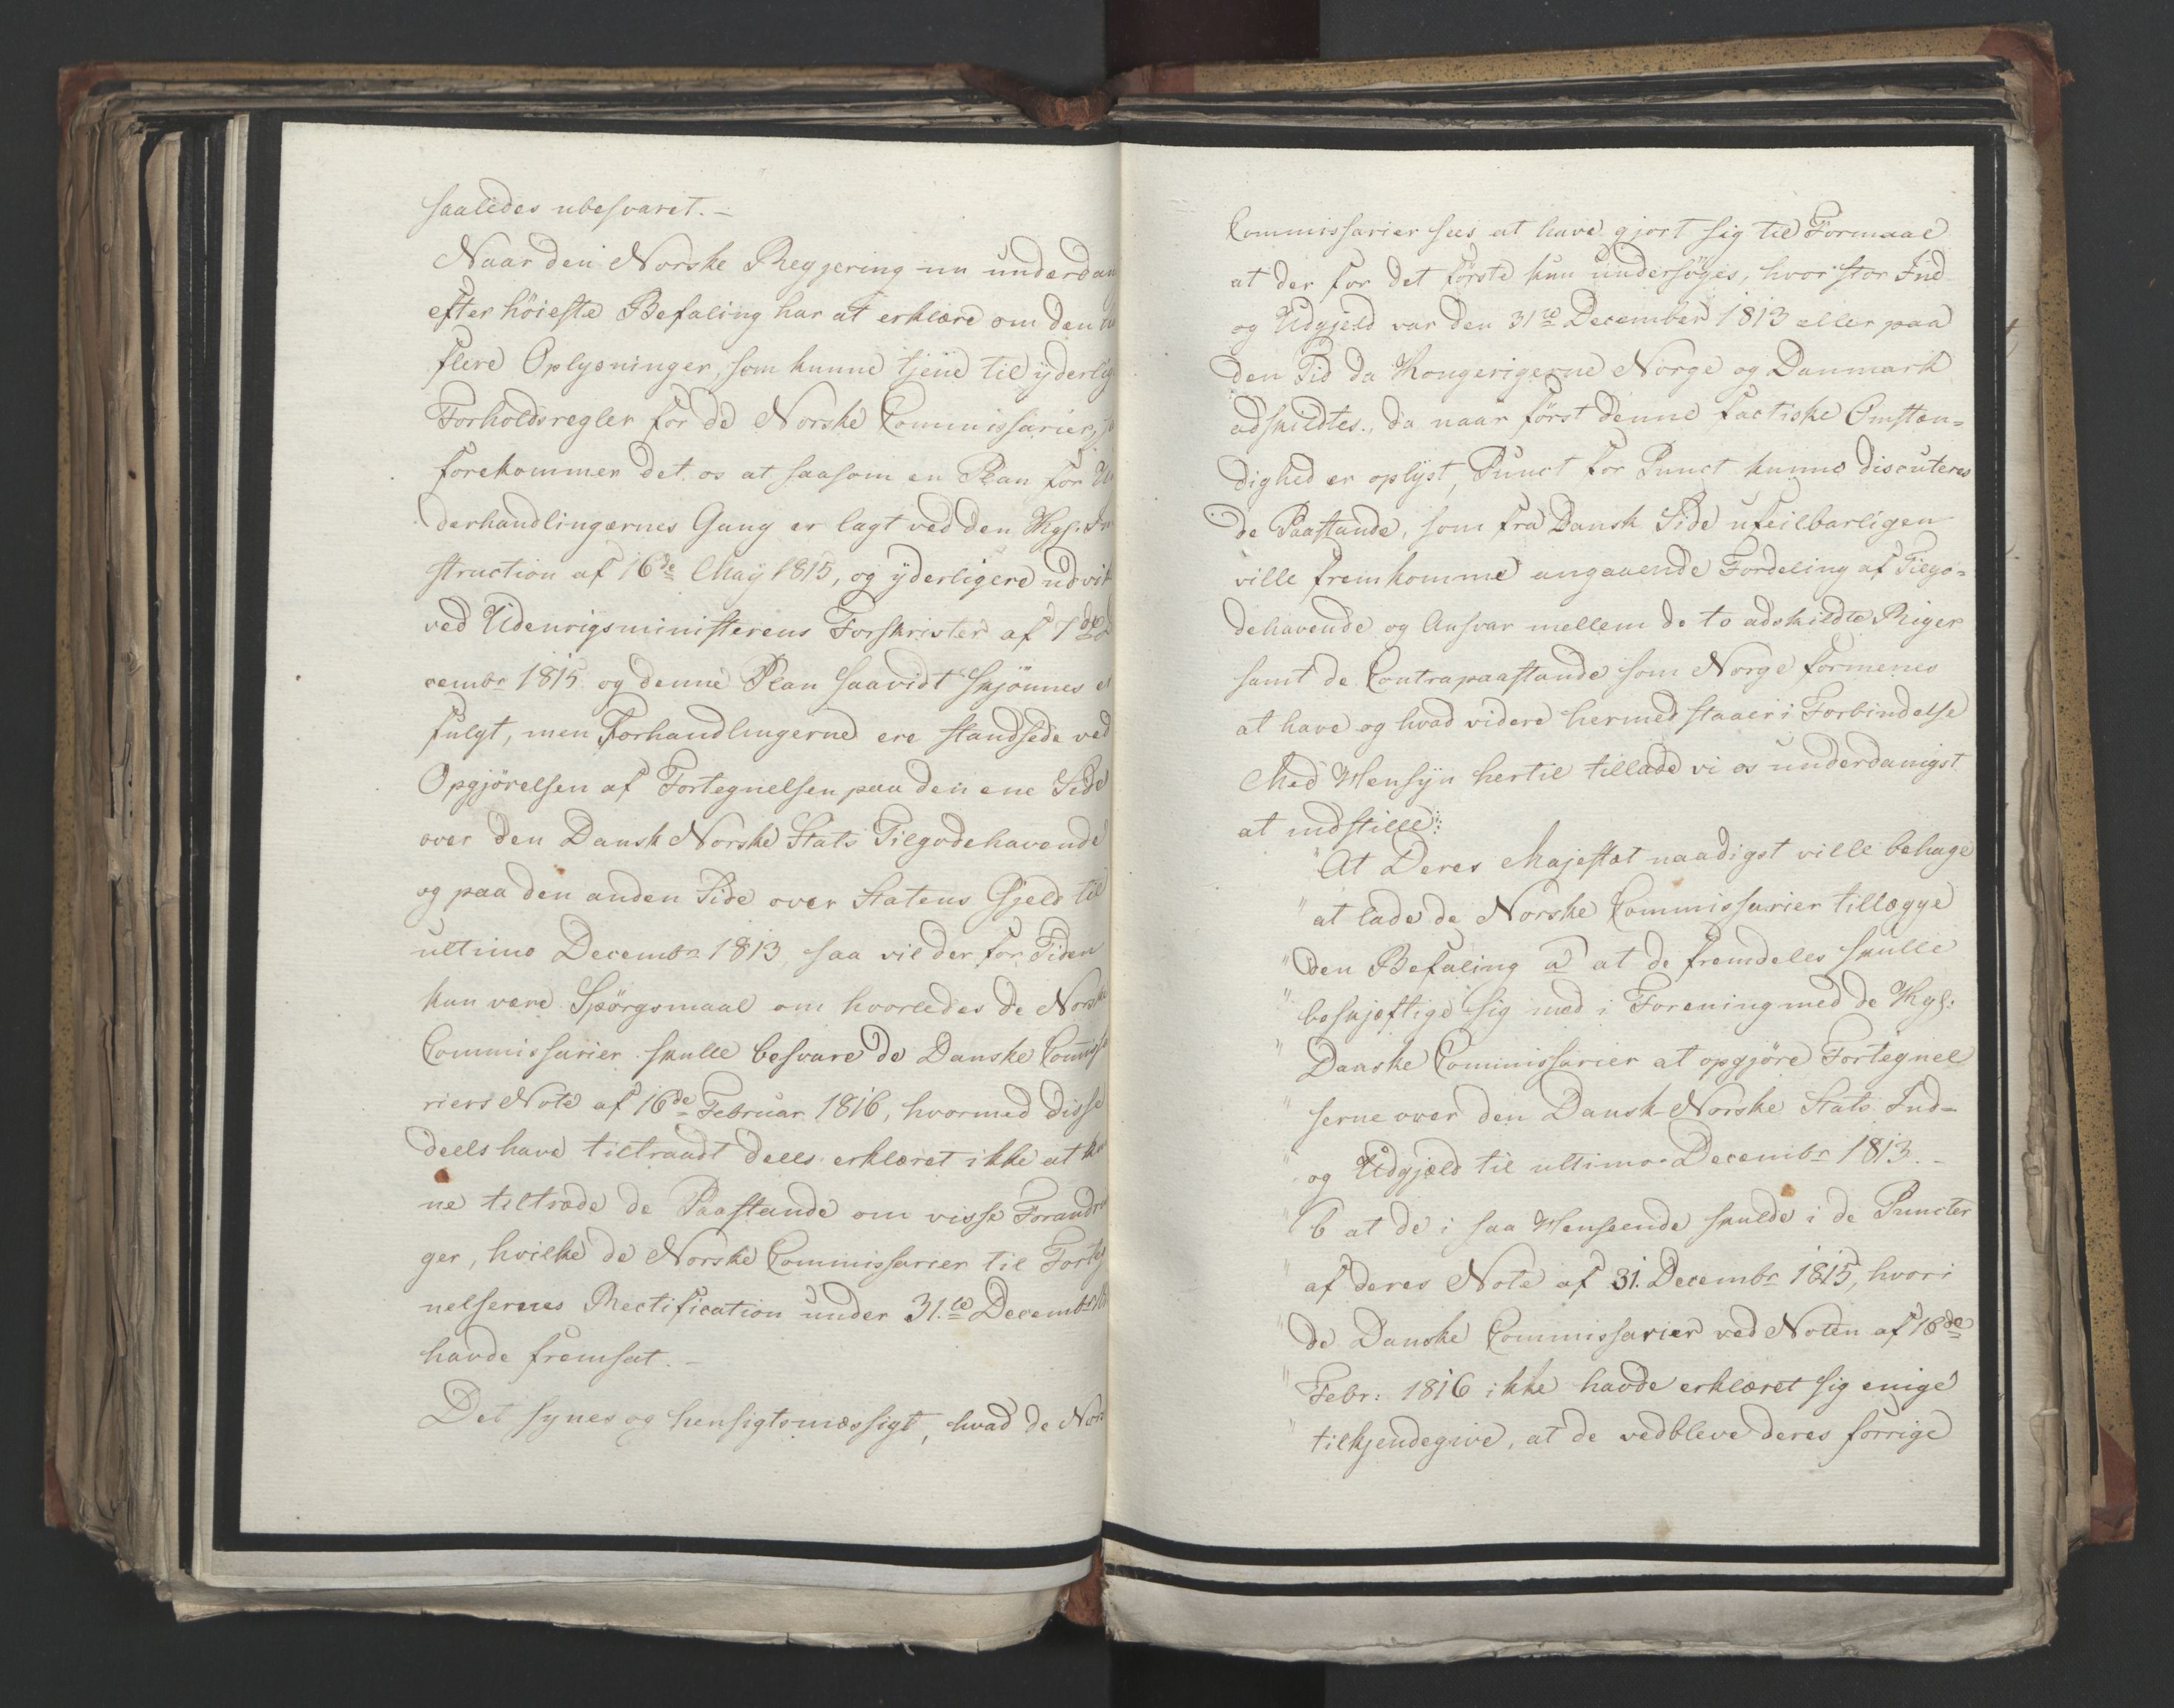 saaledes ubesvaret. –
Naar den Norske Regjering nu underdan
efter höieste Befaling har at erklære om den
flere Oplysninger, som kunne tjene til yderlig
Forholdsregler for de Norske Commissarier,
forekommer det os at saasom en Plan for U
derhandlingernes Gang er lagt ved den Kgl. In
struction af 16de May 1815, og yderligere udvik
ved Udenrigsministerens Forskrifter af 7de De
cembr 1815 og denne Plan saavidt skjönnes er
fulgt, men Forhandlingerne ere standsede ved
Opgjörelsen af Fortegnelsen paa den ene Side
over den Dansk Norske Stats Tilgodehavende
og paa den anden Side over Statens Gjeld til
ultimo Decembr 1813 saa vil der for Tiden
kun være Spörgsmaal om hvorledes de Norske
Commissarier skulle besvare de Danske Commissa
riers Note af 16de Februar 1816, hvormed disse
deels have tiltraadt deels erklæret ikke at kun
ne tiltræde de Paastande om visse Forandrin
ger, hvilke de Norske Commissarier til Forteg
nelsernes Rectification under 31.te Decembr
havde fremsat. –
Det synes og hensigtsmæssigt, hvad de Nor
Commissarier sees at have gjort sig til Formaal
at der for det förste kun undersöges, hvor stor Ind
og Udgjeld var den 31te December 1813 eller paa
den Tid da Kongerigerne Norge og Danmark
adskildtes, da naar först denne factiske Omstæn=
dighed er oplyst, Punct for Punct kunne discuteres
de Paastande, som fra Dansk Side ufeilbarligen
ville fremkomme angaaende Fordeling af Tilgo=
dehavende og Ansvar mellem de to adskildte Riger
samt de Contrapaastande som Norge formenes
at have og hvad videre hermed staaer i Forbindelse
Med Hensyn hertil tillade vi os underdanigst
at indstille:
"At Deres Majestæt naadigst ville behage
" at lade de Norske Commissarier tillægge
" den Befaling a at de fremdeles skulle
" beskjæftige sig med i Forening med de Kgl:
" Danske Commissarier at opgjöre Fortegnel
" serne over den Dansk-Norske Stats Ind=
" og Udgjæld til ultimo Decembr 1813. –
" b at de i saa Henseende skulde i de Puncter
" af deres Note af 31. Decembr 1815, hvori
" de Danske Commissarier ved Noten af 16de
" Febr: 1816 ikke havde erklæret sig enige
" tilkjendegive, at de vedbleve deres forrige